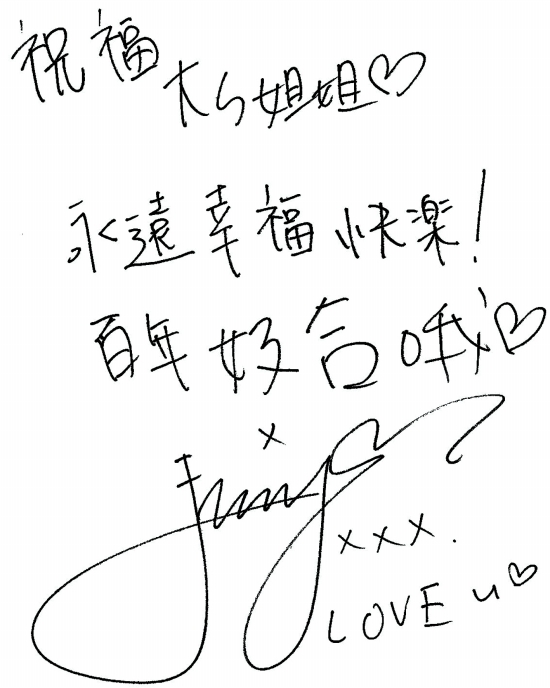 祝福
大S姐姐♡
永遠幸福快楽!
百年好合哦♡
xxx.
LOVE u♡